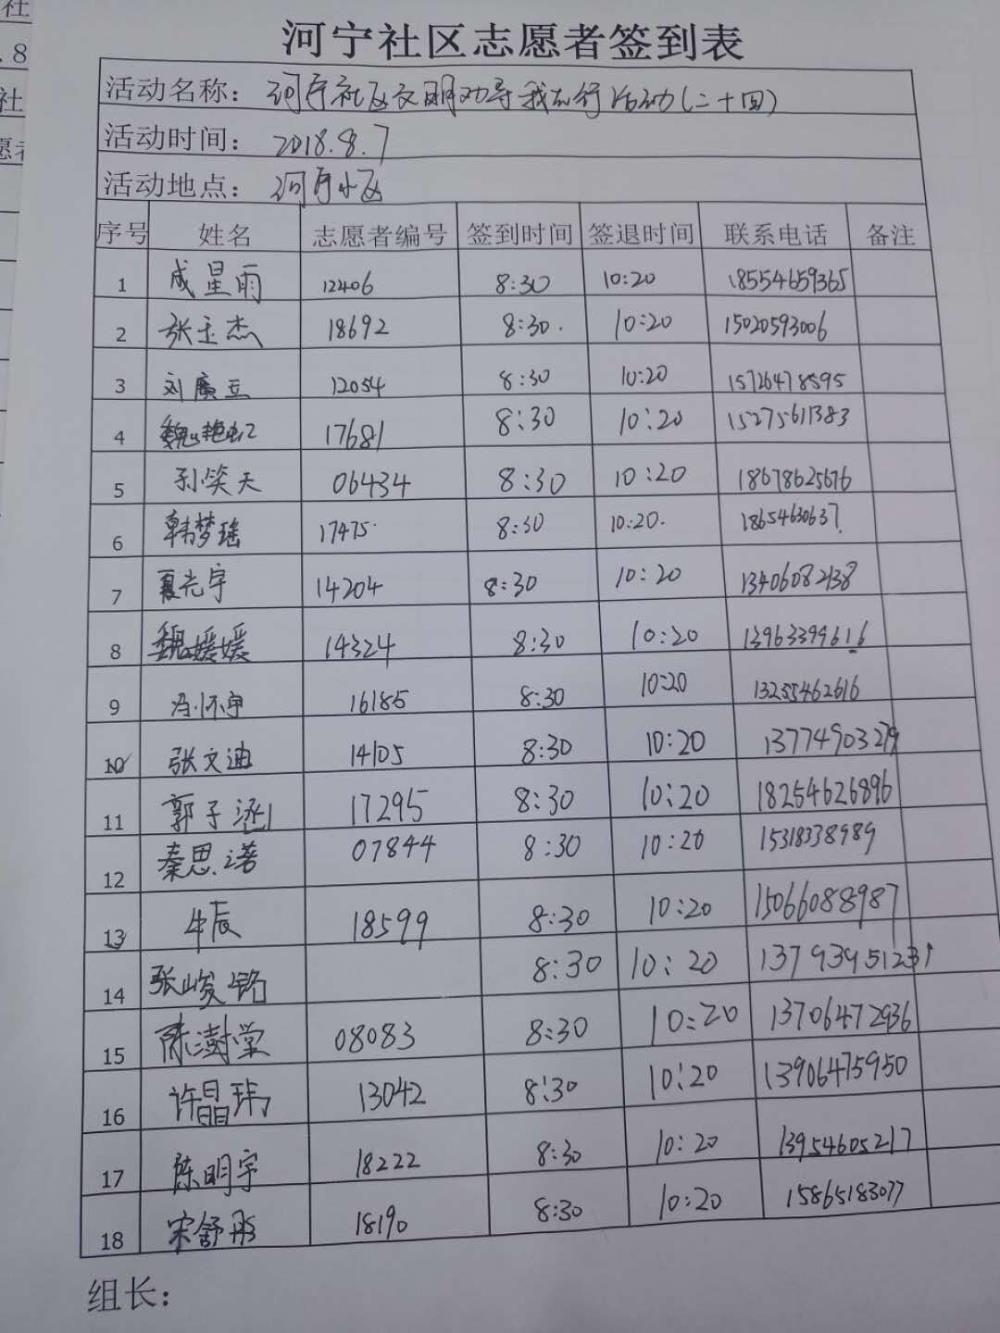 社
.8
社
愿者
河宁社区志愿者签到表
活动名称：河宁社区文明劝导我先行活动(二十四)
活动时间：2018.8.7
活动地点：河宁小区
序号 姓名 志愿者编号 签到时间 签退时间 联系电话 备注
1 成星雨 12406 8:30 10:20 18554659365
2 张玉杰 18692 8:30. 10:20 15020593006
3 刘廣立 12054 8:30 10:20 15726478595
4 魏艳红 17681 8:30 10:20 15275611383
5 孙笑天 06434 8:30 10:20 18678625676
6 韩梦瑶 17475 8:30 10:20. 18654630637
7 夏光宇 14204 8:30 10:20 13406082138
8 魏媛媛 14324 8:30 10:20 13963399616
9 冯怀宇 16185 8:30 10:20 13255462616
10 张文迪 14105 8:30 10:20 13774903279
11 郭子涵 17295 8:30 10:20 18254626896
12 秦思诺 07844 8:30 10:20 15318338989
13 牛辰 18599 8:30 10:20 15066088987
14 张峻铭 8:30 10:20 13793951231
15 陈澍堂 08083 8:30 10:20 13706472936
16 许晶玮 13042 8:30 10:20 13906475950
17 陈明宇 18222 8:30 10:20 13954605217
18 宋舒彤 18190 8:30 10:20 15865183077
组长：